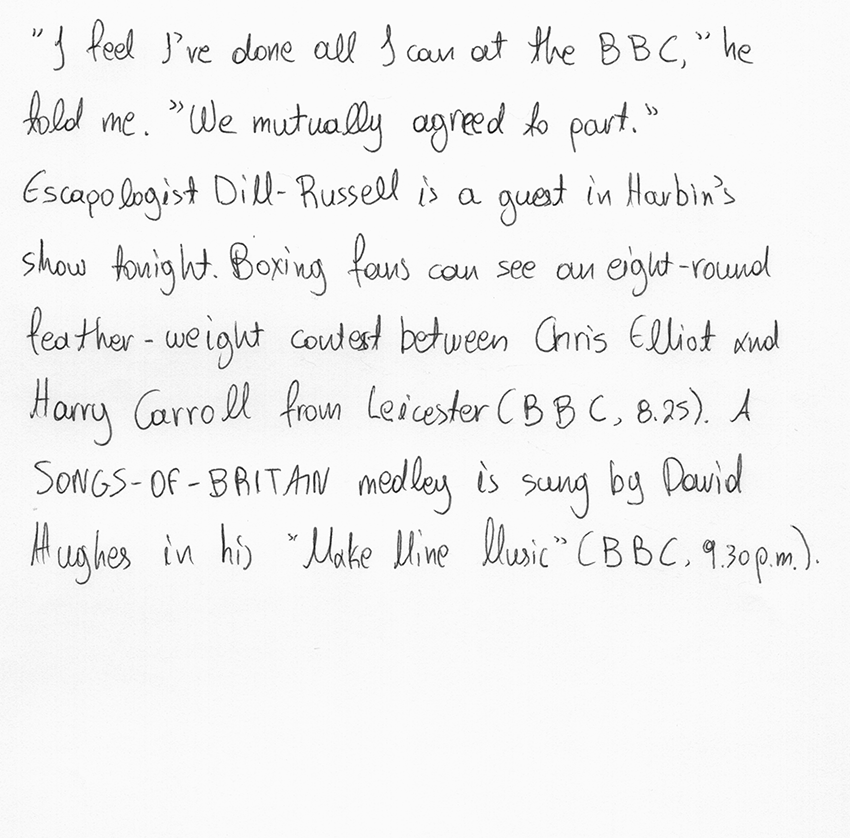 "I feel I've done all I can at the BBC," he
told me. "We mutually agreed to part."
Escapologist Dill-Russell is a guest in Harbin's
show tonight. Boxing fans can see an eight-round
feather-weight contest between Chris Elliot and
Harry Carroll from Leicester (BBC, 8.25). A
SONGS-OF-BRITAIN medley is sung by David
Hughes in his "Make Mine Music" (BBC, 9.30p.m.).